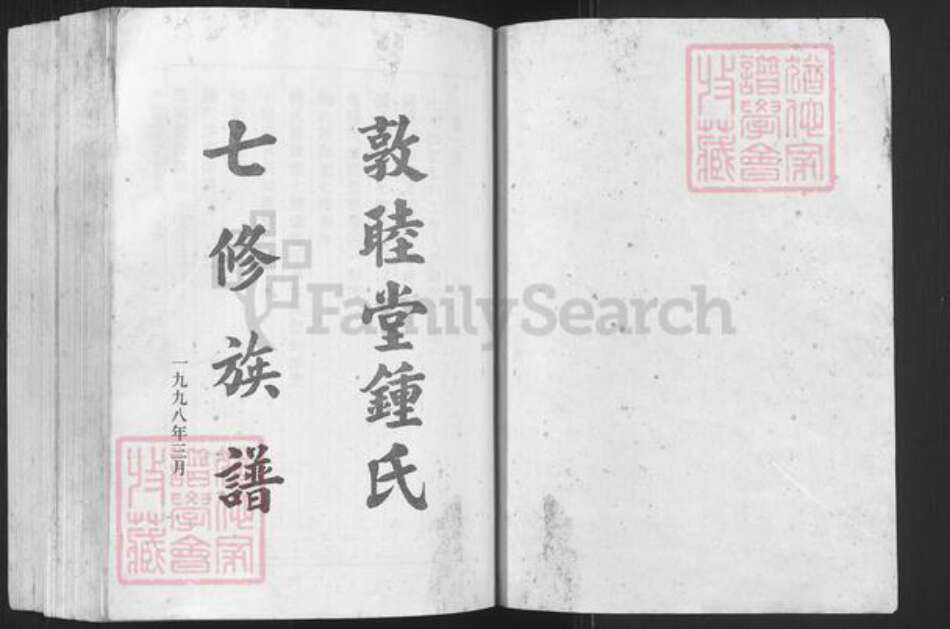 敦睦堂鍾氏
七修族譜
一九九八年三月
猶他家
譜學會
收藏
猶他家
譜學會
收藏
FamilySearch